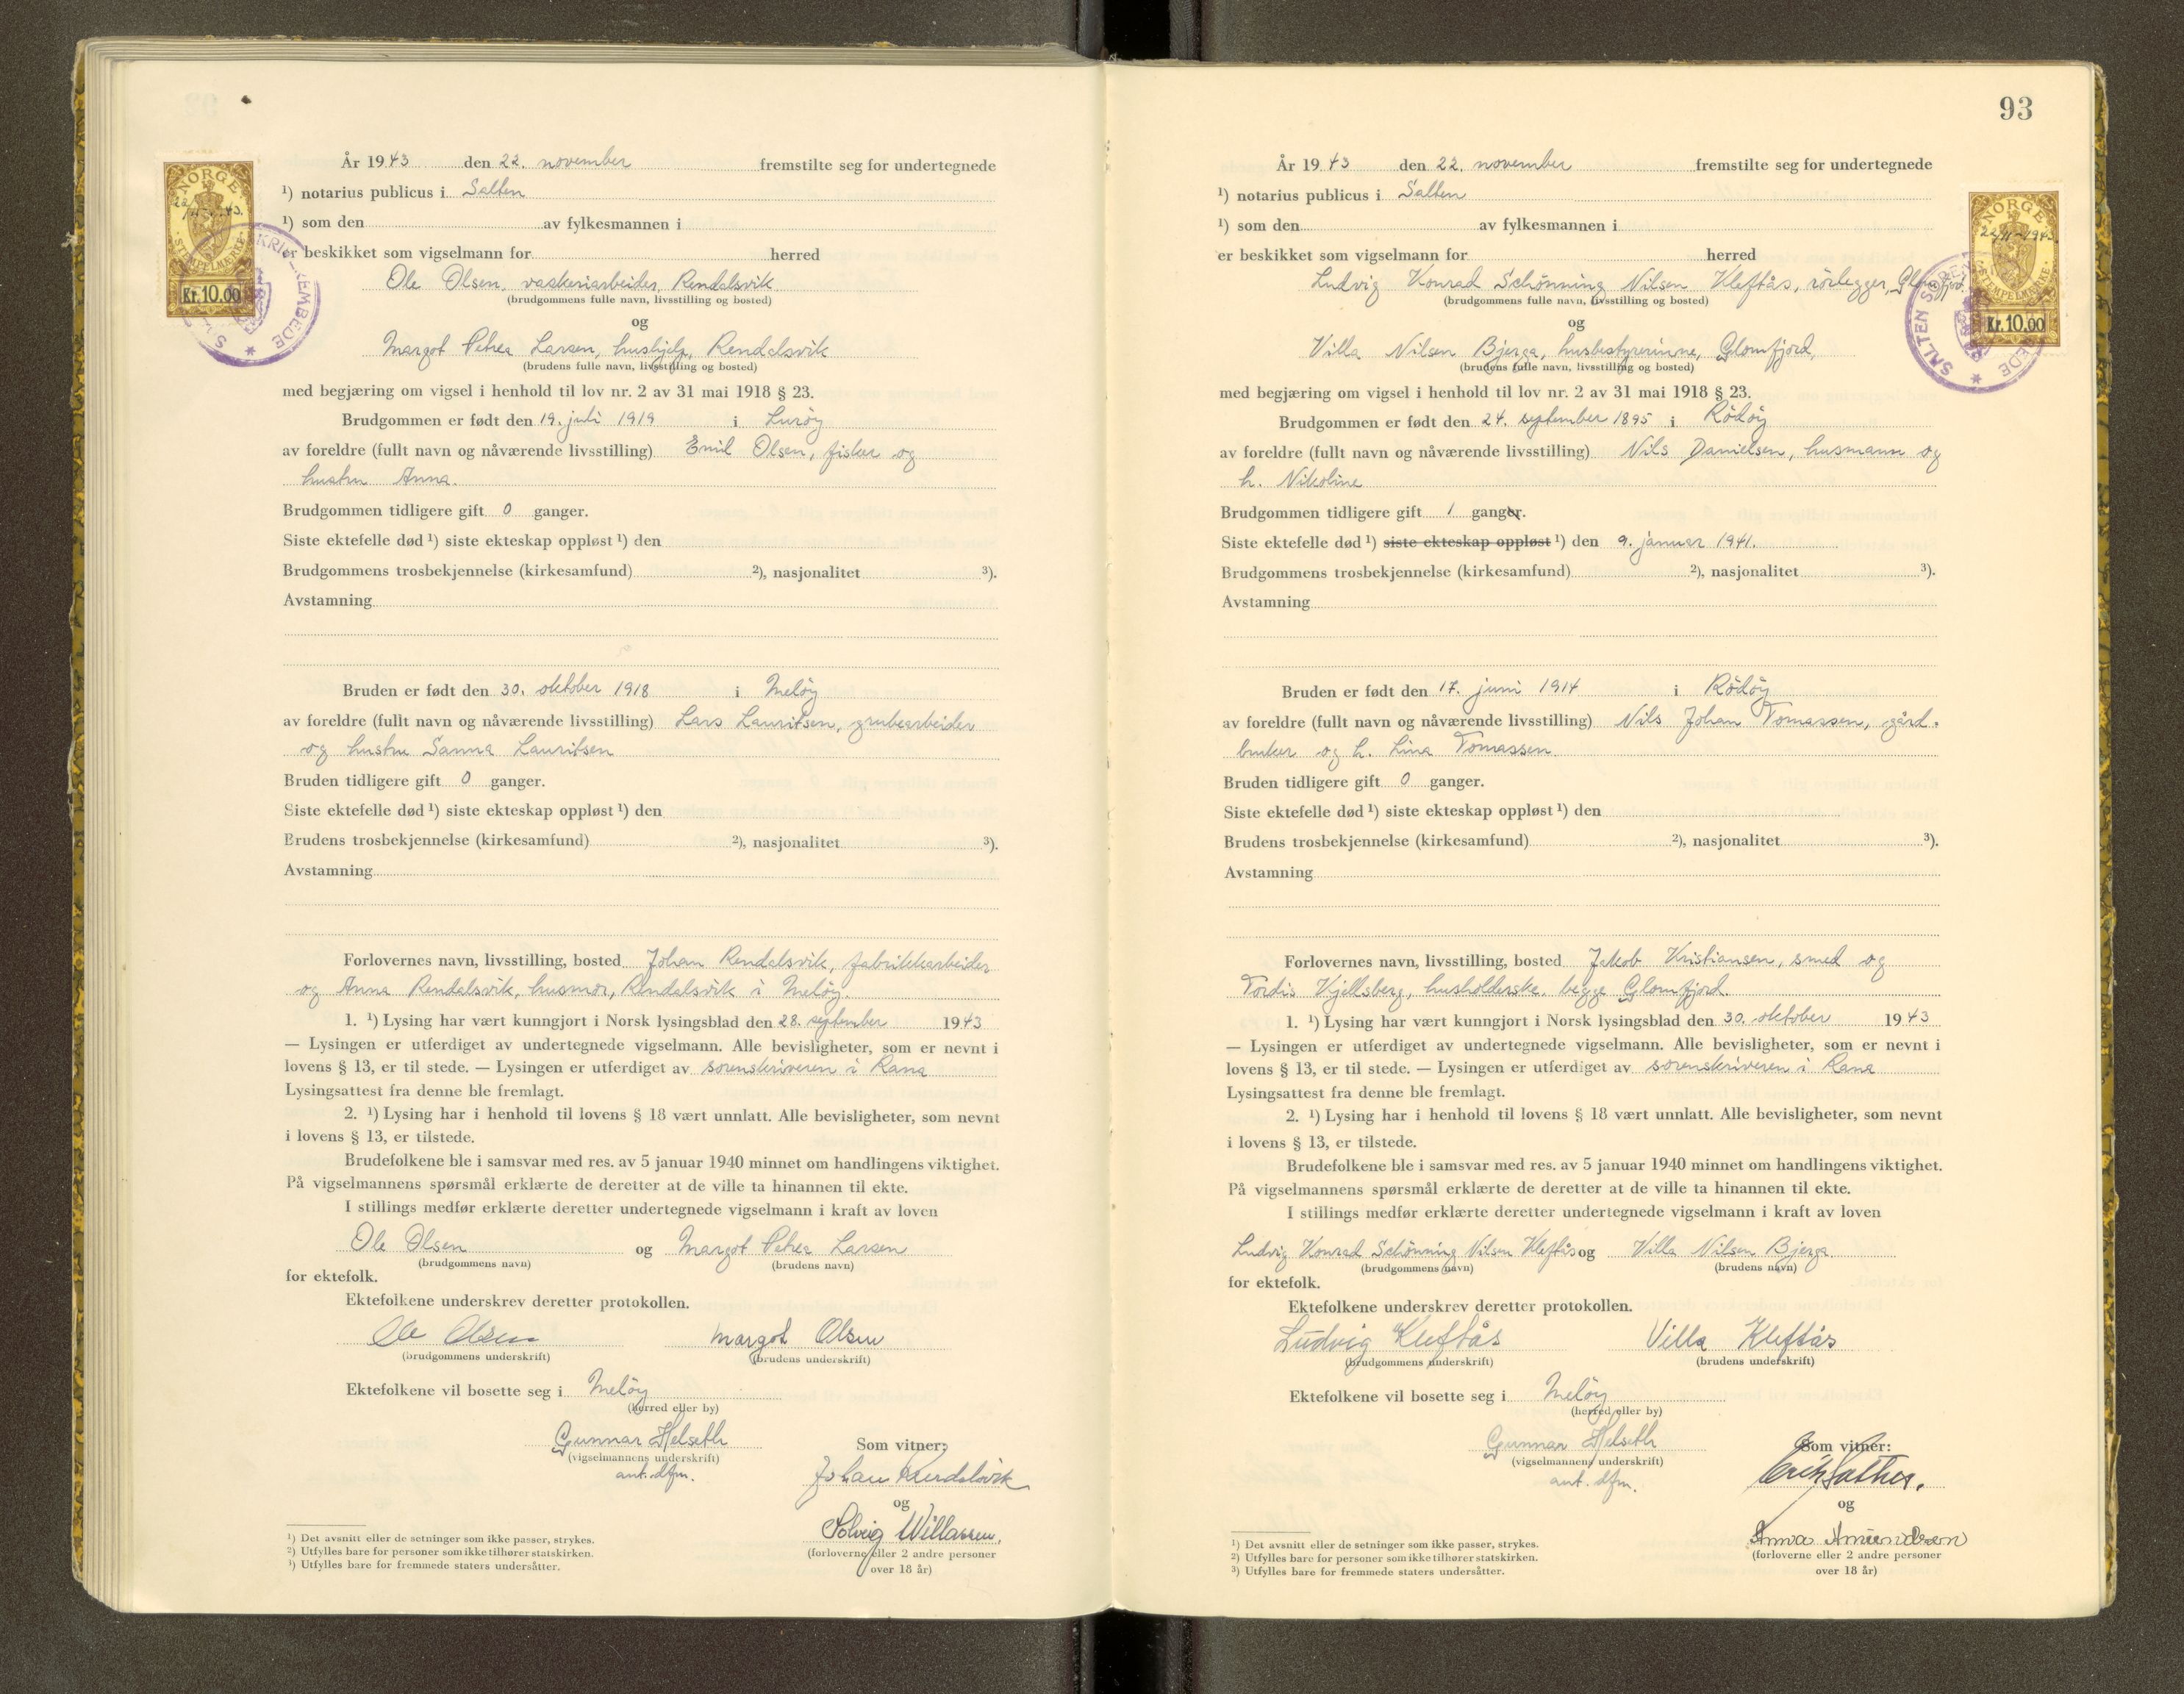 År 1943 den 22. november fremstilte seg for undertegnede
¹) notarius publicus i Salten
¹) som den av fylkesmannen i
er beskikket som vigselmann for herred
Ole Olsen, vaskeriarbeider, Rendalsvik
(brudgommens fulle navn, livsstilling og bosted)
og
Margot Petrea Larsen, hushjelp, Rendalsvik
(brudens fulle navn, livsstilling og bosted)
med begjæring om vigsel i henhold til lov nr. 2 av 31 mai 1918 § 23.
Brudgommen er født den 19. juli 1919 i Luröy
av foreldre (fullt navn og nåværende livsstilling) Emil Olsen, fisker og
hustru Anna.
Brudgommen tidligere gift 0 ganger.
Siste ektefelle død ¹) siste ekteskap oppløst ¹) den
Brudgommens trosbekjennelse (kirkesamfund) ²), nasjonalitet ³).
Avstamning
Bruden er født den 30. oktober 1918 i Melöy
av foreldre (fullt navn og nåværende livsstilling) Lars Lauritsen, grubearbeider
og hustru Sanna Lauritsen
Bruden tidligere gift 0 ganger.
Siste ektefelle død ¹) siste ekteskap oppløst ¹) den
Brudens trosbekjennelse (kirkesamfund) ²), nasjonalitet ³).
Avstamning
Forlovernes navn, livsstilling, bosted Johan Rendalsvik, fabrikkarbeider
og Anna Rendalsvik, husmor, Rendalsvik i Melöy.
1. ¹) Lysing har vært kunngjort i Norsk lysingsblad den 28. september 1943
— Lysingen er utferdiget av undertegnede vigselmann. Alle bevisligheter, som er nevnt i
lovens § 13, er til stede. — Lysingen er utferdiget av sorenskriveren i Rana
Lysingsattest fra denne ble fremlagt.
2. ¹) Lysing har i henhold til lovens § 18 vært unnlatt. Alle bevisligheter, som nevnt
i lovens § 13, er tilstede.
Brudefolkene ble i samsvar med res. av 5 januar 1940 minnet om handlingens viktighet.
På vigselmannens spørsmål erklærte de deretter at de ville ta hinannen til ekte.
I stillings medfør erklærte deretter undertegnede vigselmann i kraft av loven
Ole Olsen og Margot Petrea Larsen
(brudgommens navn) (brudens navn)
for ektefolk.
Ektefolkene underskrev deretter protokollen.
Ole Olsen Margot Olsen
(brudgommens underskrift) (brudens underskrift)
Ektefolkene vil bosette seg i Melöy
(herred eller by)
Gunnar Helseth
(vigselmannens underskrift)
aut. dfm.
Som vitner:
Johan Rendalsvik
og
Solveig Willassen,
(forloverne eller 2 andre personer
over 18 år)
¹) Det avsnitt eller de setninger som ikke passer, strykes.
²) Utfylles bare for personer som ikke tilhører statskirken.
³) Utfylles bare for fremmede staters undersåtter.
NORGE
STEMPELMERKE
Kr. 10.00
93
År 1943 den 22. november fremstilte seg for undertegnede
¹) notarius publicus i Salten
¹) som den av fylkesmannen i
er beskikket som vigselmann for herred
Ludvig Konrad Schönning Nilsen Kleftås, rörlegger, Glomfjord.
(brudgommens fulle navn, livsstilling og bosted)
og
Villa Nilsen Bjerga, husbestyrerinne, Glomfjord,
(brudens fulle navn, livsstilling og bosted)
med begjæring om vigsel i henhold til lov nr. 2 av 31 mai 1918 § 23.
Brudgommen er født den 24. september 1895 i Rödöy
av foreldre (fullt navn og nåværende livsstilling) Nils Danielsen, husmann og
h. Nikoline
Brudgommen tidligere gift 1 ganger.
Siste ektefelle død ¹) siste ekteskap oppløst ¹) den 9. januar 1941.
Brudgommens trosbekjennelse (kirkesamfund) ²), nasjonalitet ³).
Avstamning
Bruden er født den 17. juni 1914 i Rödöy
av foreldre (fullt navn og nåværende livsstilling) Nils Johan Tomassen, gård-
bruker og h. Lina Tomassen.
Bruden tidligere gift 0 ganger.
Siste ektefelle død ¹) siste ekteskap oppløst ¹) den
Brudens trosbekjennelse (kirkesamfund) ²), nasjonalitet ³).
Avstamning
Forlovernes navn, livsstilling, bosted Jakob Kristiansen, smed og
Tordis Kjellsberg, husholderske. begge Glomfjord.
1. ¹) Lysing har vært kunngjort i Norsk lysingsblad den 30. oktober 1943
— Lysingen er utferdiget av undertegnede vigselmann. Alle bevisligheter, som er nevnt i
lovens § 13, er til stede. — Lysingen er utferdiget av sorenskriveren i Rana
Lysingsattest fra denne ble fremlagt.
2. ¹) Lysing har i henhold til lovens § 18 vært unnlatt. Alle bevisligheter, som nevnt
i lovens § 13, er tilstede.
Brudefolkene ble i samsvar med res. av 5 januar 1940 minnet om handlingens viktighet.
På vigselmannens spørsmål erklærte de deretter at de ville ta hinannen til ekte.
I stillings medfør erklærte deretter undertegnede vigselmann i kraft av loven
Ludvig Konrad Schönning Nilsen Kleftås og Villa Nilsen Bjerga
(brudgommens navn) (brudens navn)
for ektefolk.
Ektefolkene underskrev deretter protokollen.
Ludvig Kleftås Villa Kleftås
(brudgommens underskrift) (brudens underskrift)
Ektefolkene vil bosette seg i Melöy
(herred eller by)
Gunnar Helseth
(vigselmannens underskrift)
aut. dfm.
Som vitner:
og
Anna Amundsen
(forloverne eller 2 andre personer
over 18 år)
¹) Det avsnitt eller de setninger som ikke passer, strykes.
²) Utfylles bare for personer som ikke tilhører statskirken.
³) Utfylles bare for fremmede staters undersåtter.
NORGE
22/11-1943.
STEMPELMERKE
Kr. 10.00